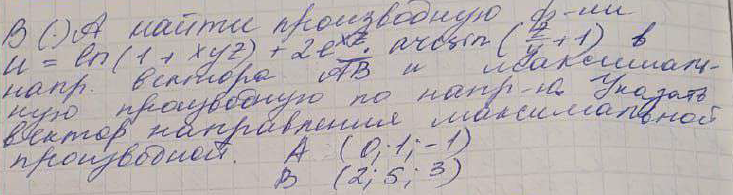 В (·) А найти производную ф-ии
u = ln(1 + xyz) + 2e^{xz} · arcsin(\frac{z}{y} + 1) в
напр. вектора \overline{AB} и максималь-
ную производную по напр-ю. Указать
вектор направления максимальной
производной. А (0; 1; -1)
В (2; 5; 3)